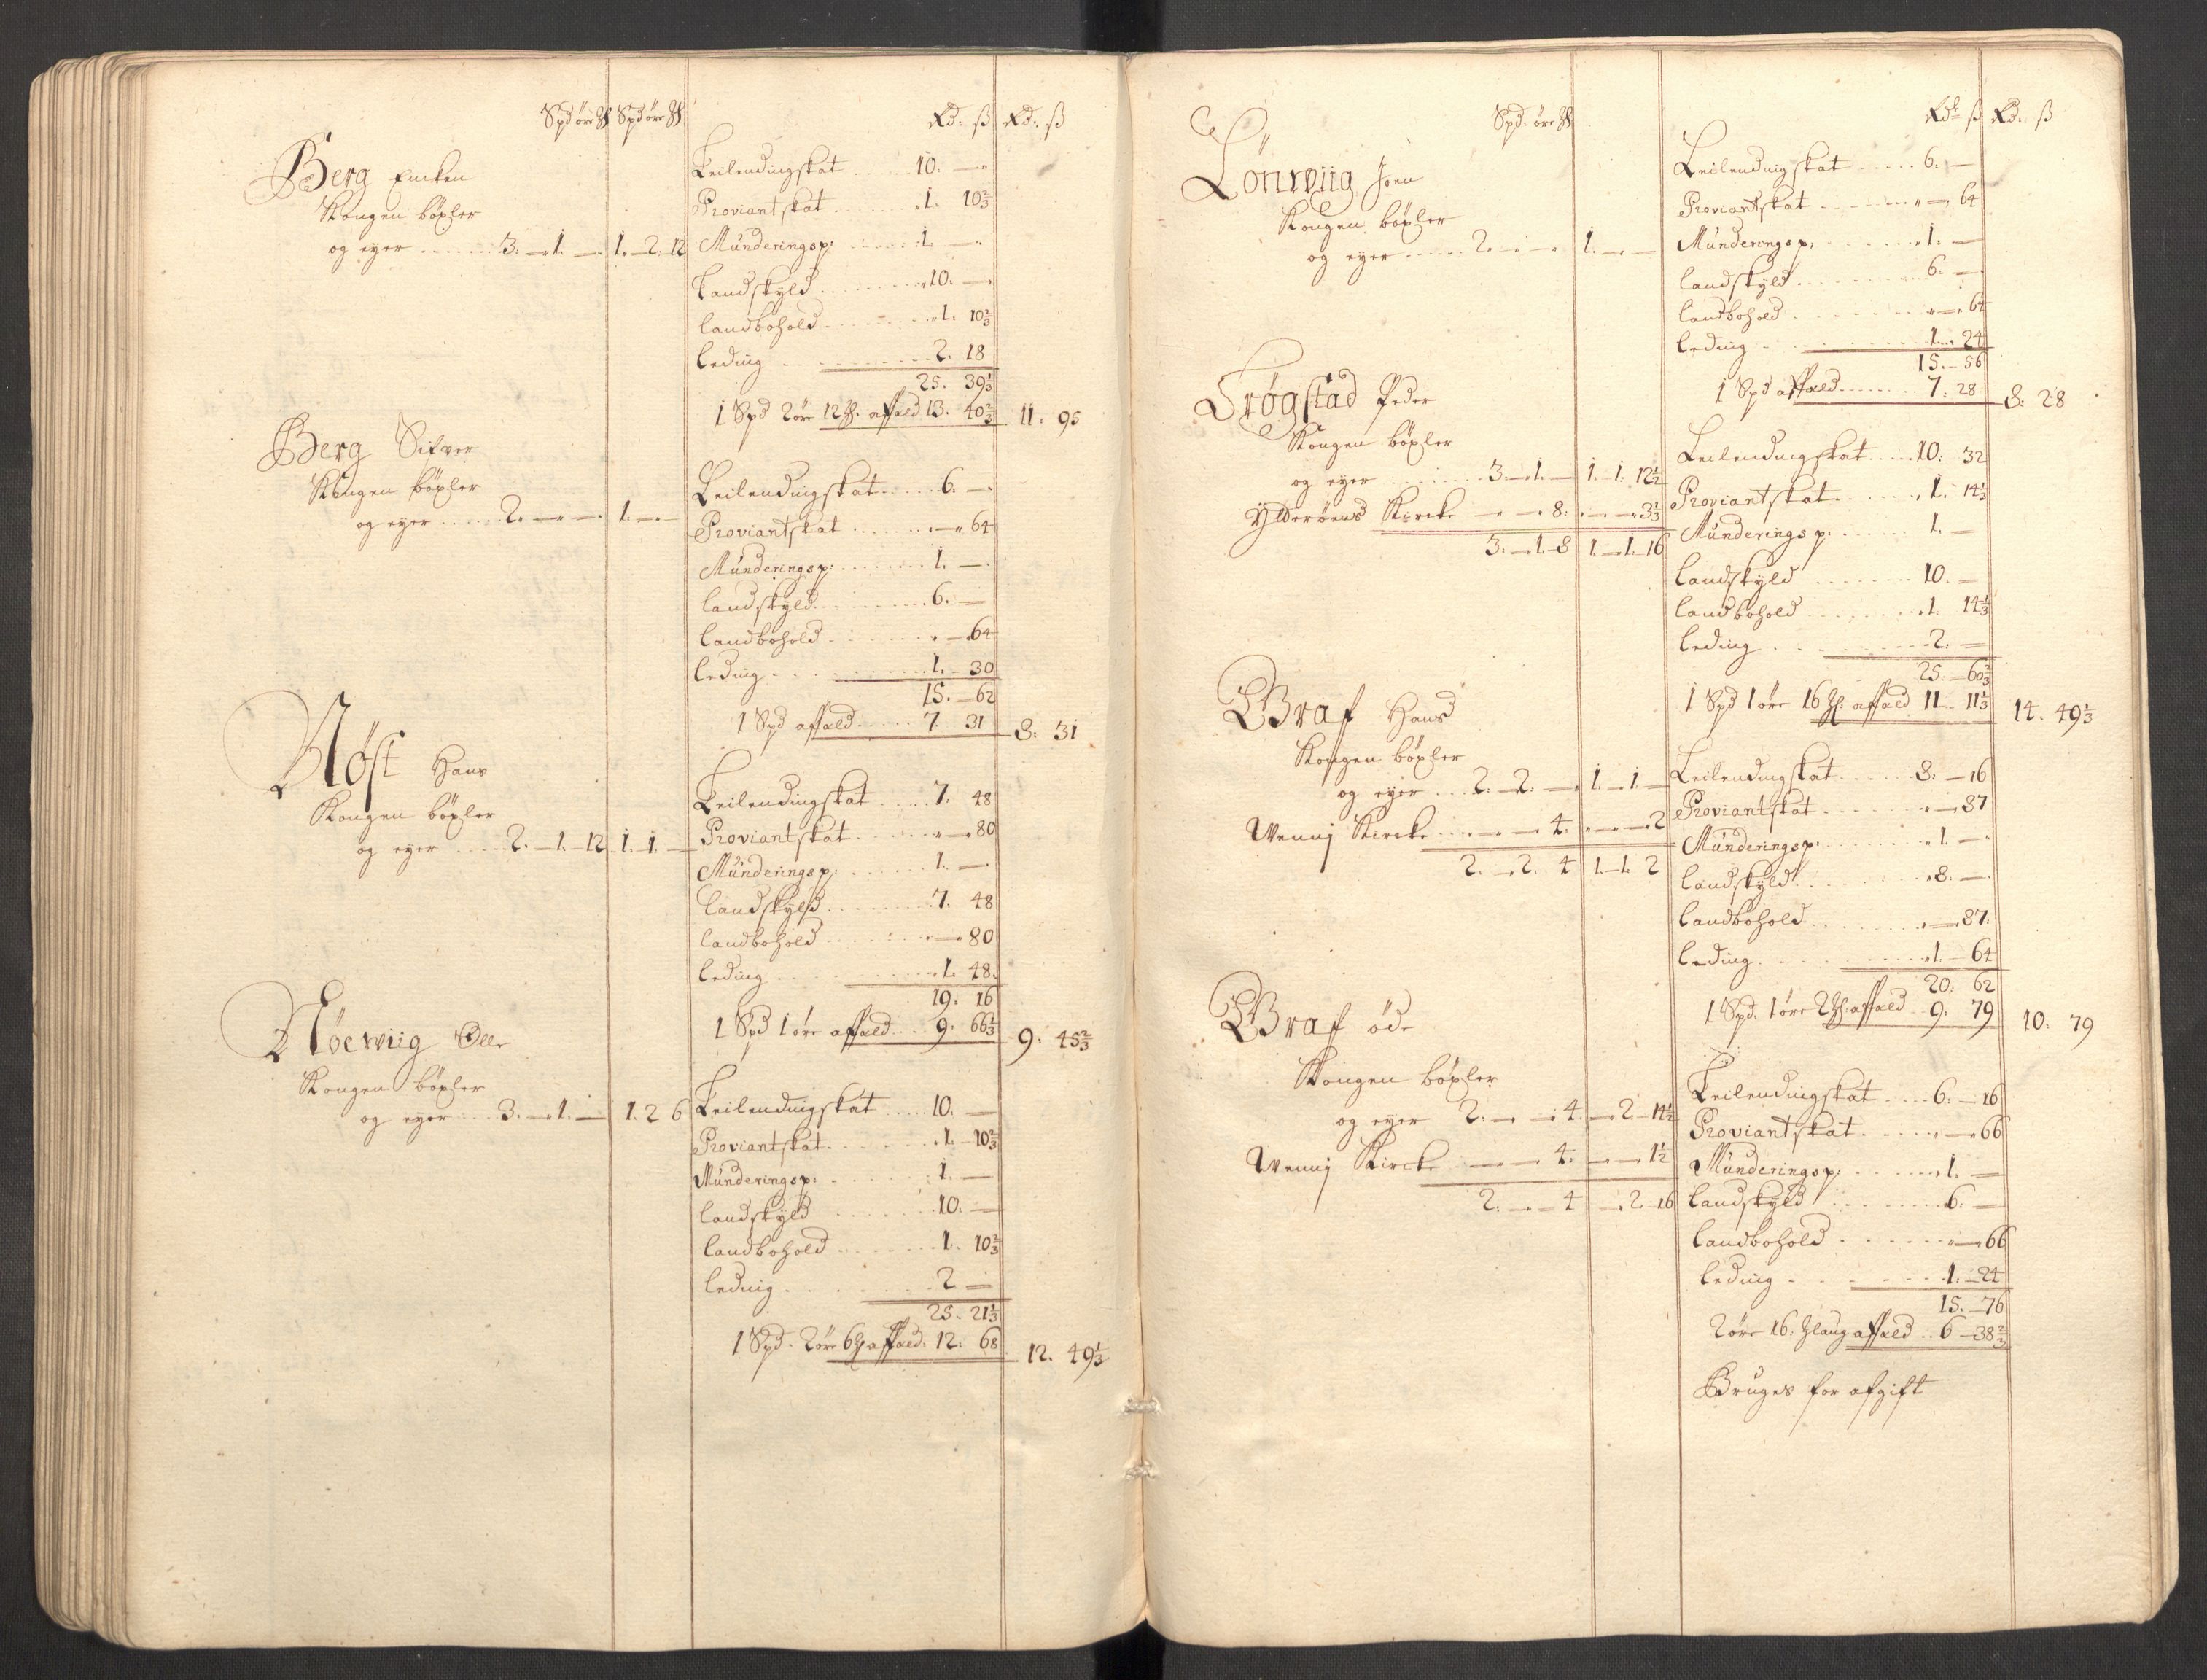 Spd øre ℔ Spd øre ℔ Rd: ß Rd: ß
Berg Encken
Kongen böxler
og eyer ..... 3. — 1. — 1. — 2. 12
Leilendingskat ..... 10. —
Proviantskat ..... 1. 10⅔
Munderingsp: ..... 1. —
Landskyld ..... 10. —
landbohold ..... 1. 10⅔
leding ..... 2. 18
25. 39⅓
1 Spd 2 øre 12 ℔. affald 13. 40⅔ 11. 95
Berg Sifver
Kongen böxler
og eyer ..... 2. — — 1. — —
Leilendingskat ..... 6. —
Proviantskat ..... — 64
Munderingsp: ..... 1. —
landskyld ..... 6. —
landbohold ..... — 64
leding ..... 1. 30
15. — 62
1 Spd affald ..... 7. 31 8: 31
Nöst Hans
Kongen böxler
og eyer ..... 2. — 1. — 12 1. 1. —
Leilendingskat ..... 7. 48
Proviantskat ..... — 80
Munderingsp: ..... 1. —
Landskyld ..... 7. 48
landbohold ..... — 80
leding ..... 1. 48.
19. 16
1 Spd 1 øre affald ... 9. 66⅓ 9. 45⅔
Nöewiig Olle
Kongen böxler
og eyer ..... 3. — 1. — 1. 2 6
Leilendingskat ..... 10. —
Proviantskat ..... 1. — 10⅔
Munderingsp: ..... 1. —
landskyld ..... 10. —
landbohold ..... 1. 10⅔
leding ..... 2 —
25. 21⅓
1 Spd. 2 øre 6 ℔ affald. 12. 68 12. 49⅓
Spd. øre ℔ Rdl ß Rd: ß
Lönwiig Joen
Kongen böxler
og eyer ..... 2. — — 1. — —
Leilendingskat ..... 6. —
Proviantskat ..... — 64
Munderingsp, ..... 1. —
landskyld ..... 6. —
landbohold ..... — 64
leding ..... 1. 24
15. — 56
1 Spd affald ..... 7. 28 8. 28
Trögstad Peder
Kongen böxler
og eyer ..... 3. — 1. — 1. 1. 12½
Ytterøens Kircke — — 8. — — 3⅓
3. — 1. — 8 1. — 1. — 16
Leilendingskat ..... 10. 32
Proviantskat ..... 1. 14⅓
Munderingsp. ..... 1. —
landskyld ..... 10. —
landbohold ..... 1. 14⅓
leding ..... 2. —
25. — 60⅔
1 Spd 1 øre 16 ℔. affald 11. 11⅓ 14. 49⅓
Graf Hans
Kongen böxler
og eyer ... 2. — 2. — 1. — 1. —
Wennj Kircke ..... — — 4. — — 2
2. — 2. 4 1. — 1. 2
Leilendingskat ..... 8. — 16
Proviantskat ..... — 87
Munderingsp: ..... 1. —
landskyld ..... 8. —
landbohold ..... — 87.
leding ..... 1. — 64
20. 62
1 Spd. 1 øre 2 ℔. affald 9. 79 10. 79
Graf öde
Kongen böxler
og eyer 2. — — 4. — 2. — 14½
Wennj Kircke — — 4. — — 1½
2. — — 4 — 2 — 16
Leilendingskat ..... 6. — 16
Proviantskat ..... — 66
Munderingsp: ..... 1. —
landskyld ..... 6. —
landbohold ..... — 66
leding ..... 1. — 24
15. — 76
2 øre 16. ℔ laug affald .. 6 — 38⅔
Bruges for afgift